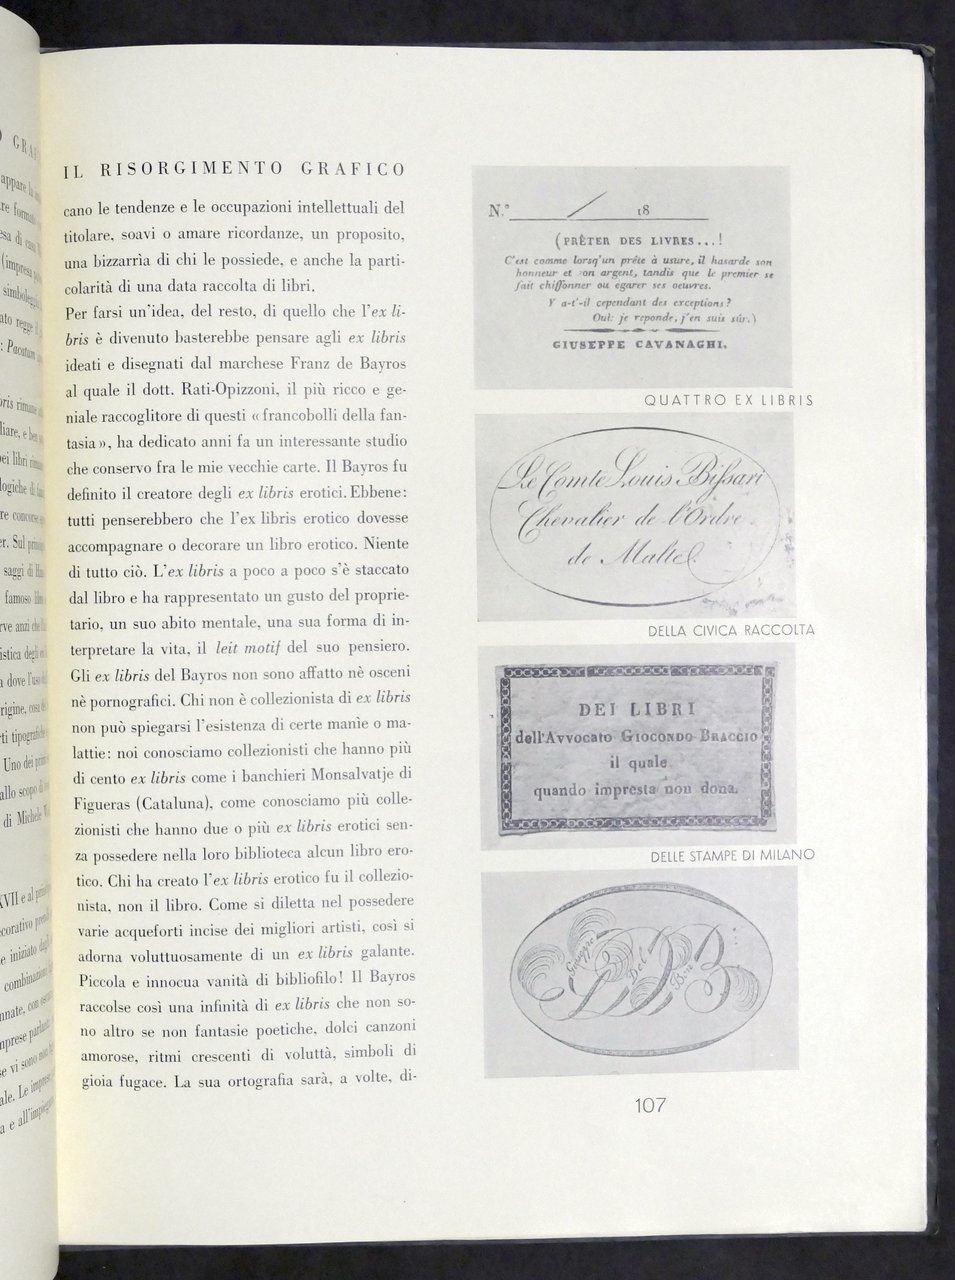 IL RISORGIMENTO GRAFICO
cano le tendenze e le occupazioni intellettuali del
titolare, soavi o amare ricordanze, un proposito,
una bizzarrìa di chi le possiede, e anche la parti-
colarità di una data raccolta di libri.
Per farsi un'idea, del resto, di quello che l'ex li-
bris è divenuto basterebbe pensare agli ex libris
ideati e disegnati dal marchese Franz de Bayros
al quale il dott. Rati-Opizzoni, il più ricco e ge-
niale raccoglitore di questi « francobolli della fan-
tasia », ha dedicato anni fa un interessante studio
che conservo fra le mie vecchie carte. Il Bayros fu
definito il creatore degli ex libris erotici. Ebbene:
tutti penserebbero che l'ex libris erotico dovesse
accompagnare o decorare un libro erotico. Niente
di tutto ciò. L'ex libris a poco a poco s'è staccato
dal libro e ha rappresentato un gusto del proprie-
tario, un suo abito mentale, una sua forma di in-
terpretare la vita, il leit motif del suo pensiero.
Gli ex libris del Bayros non sono affatto nè osceni
nè pornografici. Chi non è collezionista di ex libris
non può spiegarsi l'esistenza di certe manìe o ma-
lattie: noi conosciamo collezionisti che hanno più
di cento ex libris come i banchieri Monsalvatje di
Figueras (Cataluna), come conosciamo più colle-
zionisti che hanno due o più ex libris erotici sen-
za possedere nella loro biblioteca alcun libro ero-
tico. Chi ha creato l'ex libris erotico fu il collezio-
nista, non il libro. Come si diletta nel possedere
varie acqueforti incise dei migliori artisti, così si
adorna voluttuosamente di un ex libris galante.
Piccola e innocua vanità di bibliofilo! Il Bayros
raccolse così una infinità di ex libris che non so-
no altro se non fantasie poetiche, dolci canzoni
amorose, ritmi crescenti di voluttà, simboli di
gioia fugace. La sua ortografia sarà, a volte, di-
N.° 18
(PRÊTER DES LIVRES...!
C'est comme lorsq'un prête à usure, il hasarde son
honneur et son argent, tandis que le premier se
fait chiffonner ou egarer ses oeuvres.
Y a-t'-il cependant des exceptions?
Oui: je reponde, j'en suis sûr.)
GIUSEPPE CAVANAGHI.
QUATTRO EX LIBRIS
Le Comte Louis Bissari
Chevalier de l'Ordre
de Malte
DELLA CIVICA RACCOLTA
DEI LIBRI
dell'Avvocato GIOCONDO BRACCIO
il quale
quando impresta non dona.
DELLE STAMPE DI MILANO
GDB
Giuseppe Del Bon
107